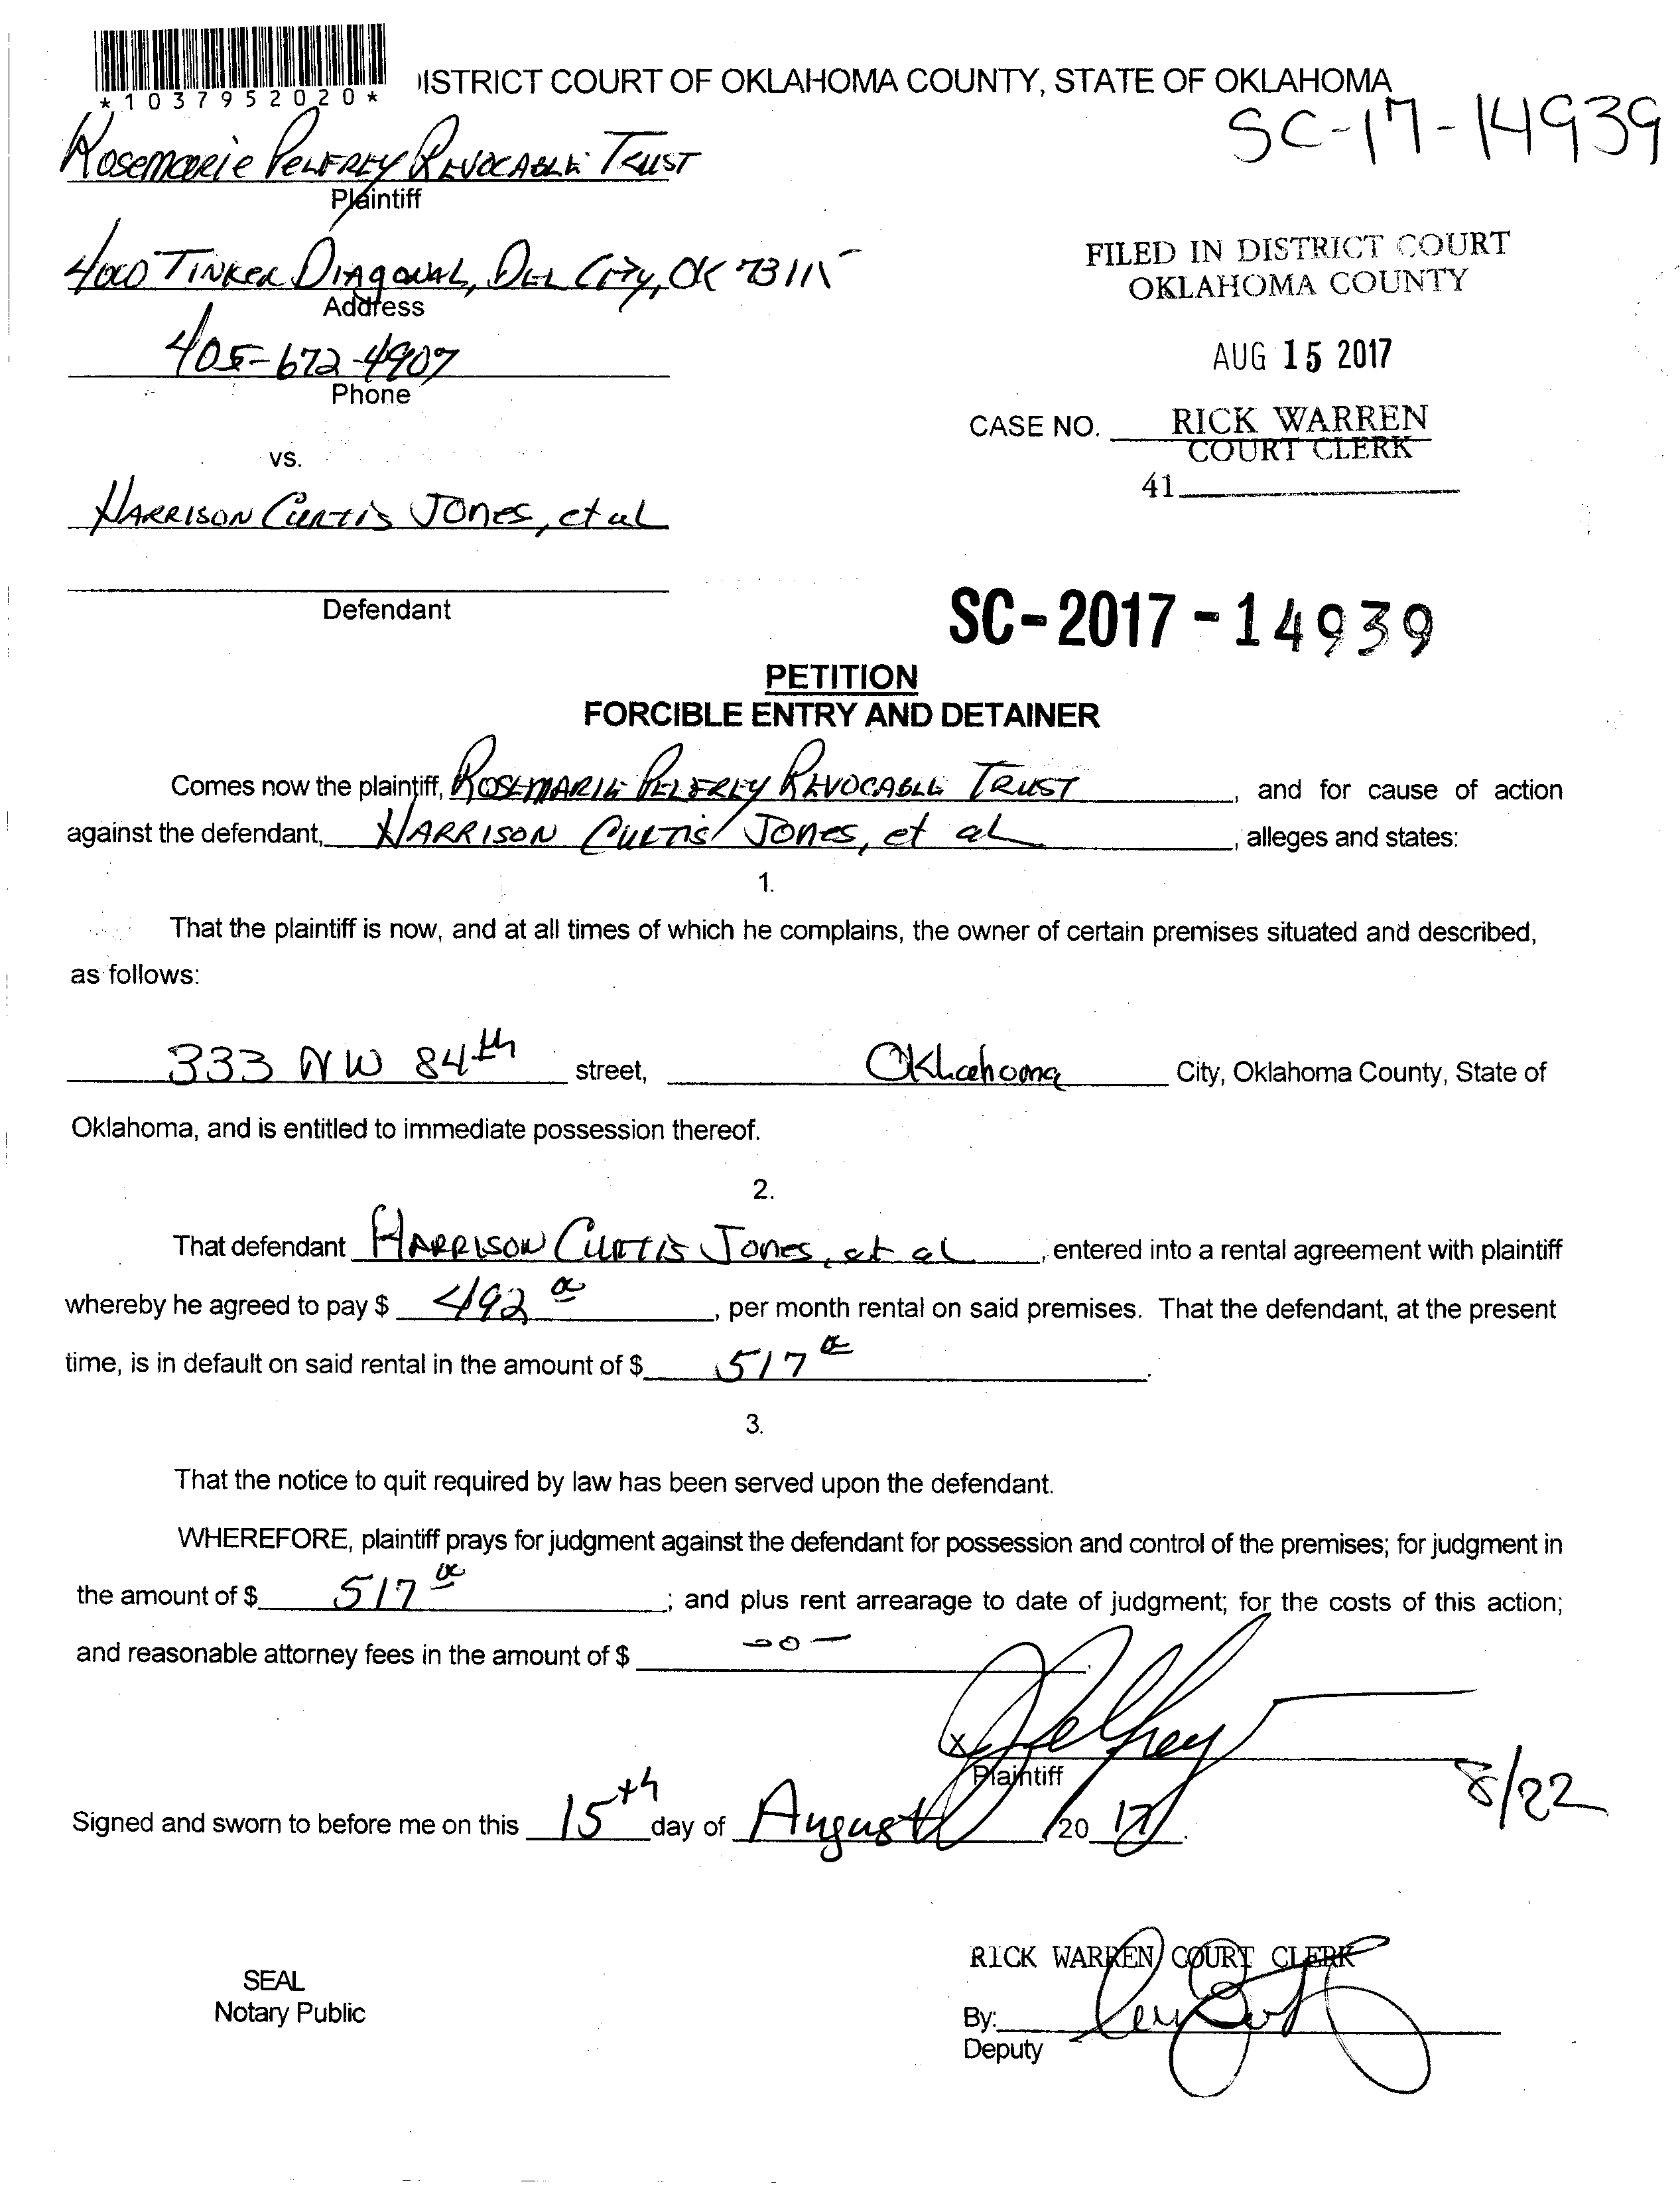 *1037952020*
ISTRICT COURT OF OKLAHOMA COUNTY, STATE OF OKLAHOMA
SC-17-14939
Rosemarie Pelfrey Revocable Trust
Plaintiff
4000 Tinker Diagonal, Del City, OK 73115
Address
405-672-4907
Phone
FILED IN DISTRICT COURT
OKLAHOMA COUNTY
AUG 15 2017
CASE NO. RICK WARREN
COURT CLERK
41
vs.
Harrison Curtis Jones, et al
Defendant
SC-2017-14939
PETITION
FORCIBLE ENTRY AND DETAINER
Comes now the plaintiff, Rosemarie Pelfrey Revocable Trust, and for cause of action
against the defendant, Harrison Curtis Jones, et al, alleges and states:
1.
That the plaintiff is now, and at all times of which he complains, the owner of certain premises situated and described,
as follows:
333 NW 84th street, Oklahoma City, Oklahoma County, State of
Oklahoma, and is entitled to immediate possession thereof.
2.
That defendant Harrison Curtis Jones, et al, entered into a rental agreement with plaintiff
whereby he agreed to pay $ 492 00, per month rental on said premises. That the defendant, at the present
time, is in default on said rental in the amount of $ 517 00.
3.
That the notice to quit required by law has been served upon the defendant.
WHEREFORE, plaintiff prays for judgment against the defendant for possession and control of the premises; for judgment in
the amount of $ 517 00; and plus rent arrearage to date of judgment; for the costs of this action;
and reasonable attorney fees in the amount of $ -0-.
x Pelfrey
Plaintiff
8/22
Signed and sworn to before me on this 15th day of August 2017.
RICK WARREN COURT CLERK
SEAL
Notary Public
By:
Deputy